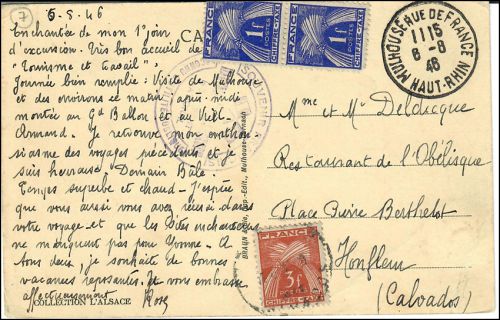 7
5-8-46
Enchantée de mon 1er jour
d'excursion. Très bon accueil de
"Tourisme et travail".
Journée bien remplie : Visite de Mulhouse
et des environs ce matin, après-midi
montée au Gd Ballon et au Vieil-
Armand. Je retrouve mon enthou
siasme des voyages précédents et je
suis heureuse. Demain Bâle.
Temps superbe et chaud. J'espère
que vous aussi vous avez réussi dans
votre voyage et que les
manquent pas pour Yvonne. A
tous deux, je souhait de bonnes
vacances reposantes. Je vous embrasse
affectueusement
COLLECTION L'ALSACE
CA
FRANCE
1F
POSTES
CHIFFRE-TAXE
FRANCE
1F
POSTES
CHIFFRE-TAXE
SOUVENIR
MULHOUSE RUE DE FRANCE
1115
6-8
46
HAUT-RHIN
BRAUN & Cie, Imp.-Édit., Mulhouse-Dornach
Mme et Mr Deldicque
Restaurant de l'Obélisque
Place Pierre Berthelot
Honfleur
(Calvados)
FRANCE
3F
POSTES
CHIFFRE-TAXE